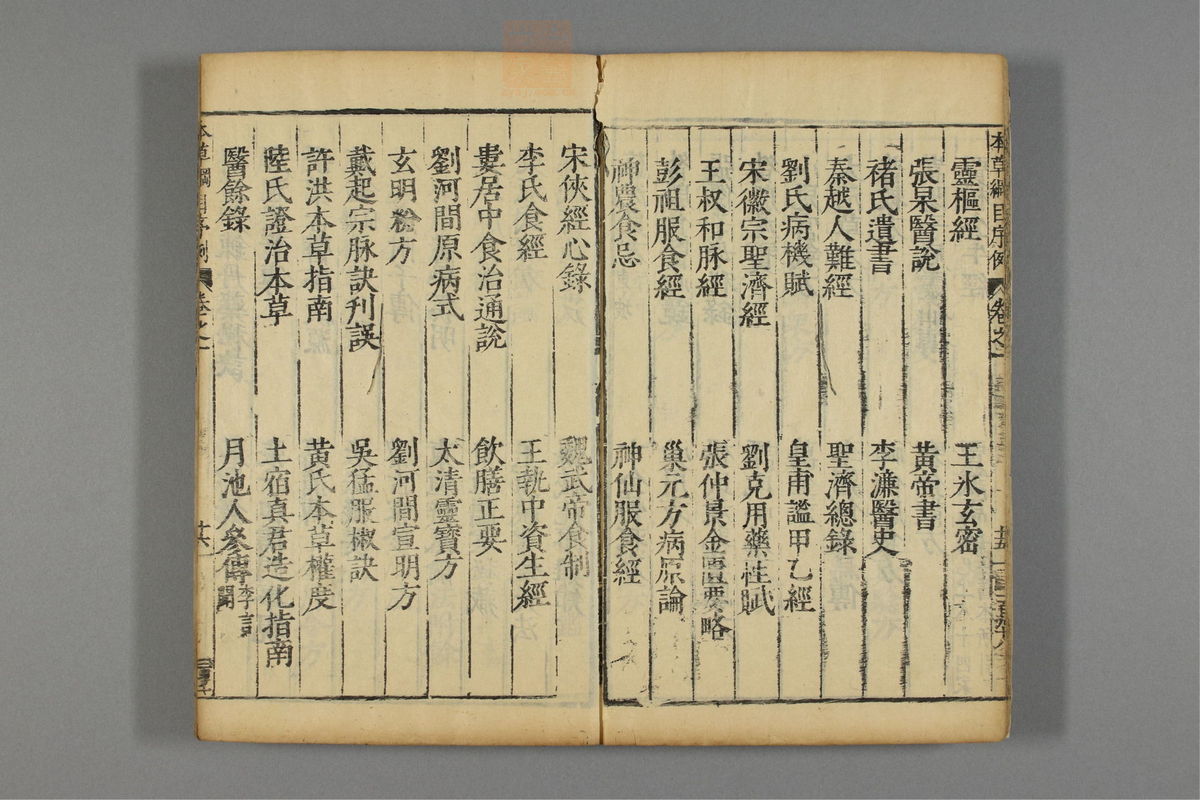 本草綱目序例 卷之一 十五
靈樞經 王氷玄密
張杲醫說 黃帝書
褚氏遺書 李濂醫史
秦越人難經 聖濟總錄
劉氏病機賦 皇甫謐甲乙經
宋徽宗聖濟經 劉克用藥性賦
王叔和脉經 張仲景金匱要略
彭祖服食經 巢元方病原論
神農食忌 神仙服食經
宋俠經心錄 魏武帝食制
李氏食經 王執中資生經
婁居中食治通說 飲膳正要
劉河間原病式 太清靈寶方
玄明粉方 劉河間宣明方
戴起宗脉訣刊誤 吳猛服椒訣
許洪本草指南 黃氏本草權度
陸氏證治本草 土宿真君造化指南
醫餘錄 月池人參傳李言聞
本草綱目序例 卷之一 十六